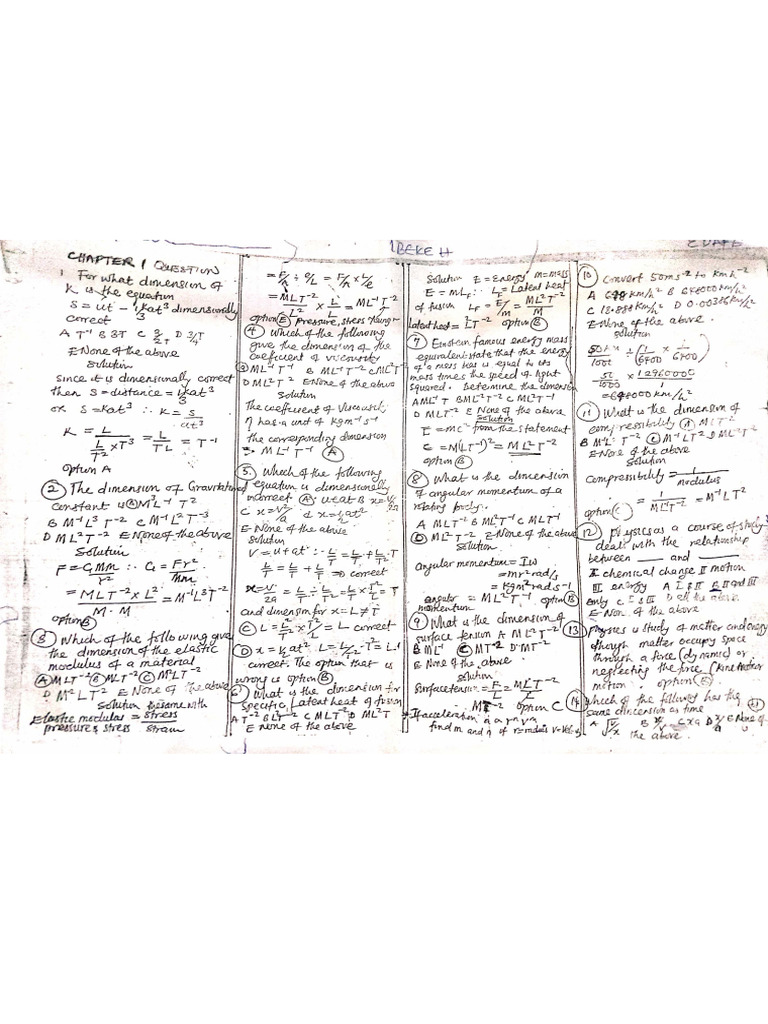 IBEKE H
CHAPTER 1 QUESTION
1 For what dimension of
K is the equation
S = ut - 1/3kat³ dimensionally
correct
A T⁻¹ B 3T C 3/2T D 3/4T
E None of the above
Solution
Since it is dimensionally correct
then S = distance = 1/3kat³
or S = Kat³ ∴ K = S/at³
K = L/(L/T² × T³) = L/TL = T⁻¹
Option A
② The dimension of Gravitational
constant is Ⓐ M³L⁻¹T²
B M⁻¹L³T⁻² C M⁻¹L²T⁻³
D ML²T⁻² E None of the above
Solution
F = GMm/r² ∴ G = Fr²/Mm
= MLT⁻² × L²/M.M = M⁻¹L³T⁻²
option B
③ Which of the following give
the dimension of the elastic
modulus of a material
Ⓐ MLT⁻² Ⓑ MLT⁻² Ⓒ M²LT⁻²
D M²LT⁻² E None of the above
Solution the same with
Elastic modulus = stress/strain
pressure & stress
= F/A ÷ e/L = F/A × L/e
= MLT⁻²/L² × L/L = ML⁻¹T⁻²
option E pressure, stress
④ Which of the following
give the dimension of the
coefficient of viscosity
ML⁻¹T⁻¹ B ML⁻²T⁻² C ML²T⁻²
D ML²T⁻² E None of the above
Solution
The coefficient of Viscosity
η has a unit of kgm⁻¹s⁻¹
the corresponding dimension
= ML⁻¹T⁻¹ Ⓐ
5. Which of the following
equation is dimensionally
incorrect Ⓐ v = u + at B x = v/2a
C x = v²/a d x = ½at²
E None of the above
Solution
V = u + at ∴ L/T = L/T + L/T².T
L/T = L/T + L/T ⇒ correct
x = v/2a = L/T ÷ L/T² = L/T × T²/L = T
and dimension for x = L ≠ T
Ⓒ L = L²/T² × T²/L = L correct
Ⓓ x = ½at² L = L/T² × T² = L
correct. The option that is
wrong is option Ⓑ
⑥ What is the dimension for
specific Latent heat of fusion
A T⁻² B L²T⁻² C MLT⁻² D MLT
E None of the above
Solution E = Energy m = mass
E = MLF ∴ LF = Latent heat
of fusion LF = E/m = ML²T⁻²/M
Latent heat = L²T⁻² option Ⓑ
⑦ Einstein famous energy mass
equivalent state that the energy
of a mass has is equal to its
mass times the speed of light
squared. Determine the dimension
A ML²T B ML²T⁻² C ML²T⁻¹
D MLT⁻² E None of the above
Solution
E = mc² from the statement
C = M(LT⁻¹)² = ML²T⁻²
option Ⓑ
⑧ What is the dimension
of angular momentum of a
rotating body.
A MLT⁻² B ML²T⁻¹ C MLT⁻¹
Ⓓ ML²T⁻² E None of the above
Solution.
angular momentum = Iω
= mr² rad/s
= kgm² rad s⁻¹
angular = ML²T⁻¹ option B
momentum
⑨ What is the dimension of
surface tension A ML²T⁻²
B ML² C MT⁻² D MT⁻²
E None of the above.
Solution
Surface tension = F/L = MLT⁻²/L
MT⁻² option C
If acceleration is a rⁿ vᵐ
find m and n of r = radius v = Vel
⑩ Convert 50ms⁻² to kmh⁻²
km/h² B 648000 km/h²
C 18.888 km/h² D 0.00386 km/h²
E None of the above.
Solution
÷ (1/6400 × 1/6400)
50/1000 × 12960000/1
= 648000 km/h²
⑪ What is the dimension of
compressibility Ⓐ MLT⁻²
Ⓒ M⁻¹LT² D ML²T⁻²
E None of the above
Solution
Compressibility = 1/modulus
= 1/ML⁻¹T⁻² = M⁻¹LT²
option Ⓒ
⑫ physics as a course of study
deals with the relationship
between ____ and ____
I chemical change II motion
III energy A I & II B II and III
only C I & III D all the above
E Non. of the above
⑬ Physics is study of matter and energy
though matter occupy space
through a force (dynamic) or
neglecting the force (Kinematics)
motion. option Ⓑ
⑭ Which of the following has the
same dimension as time
A v/x B x/v C xa D v/a E None of
the above.